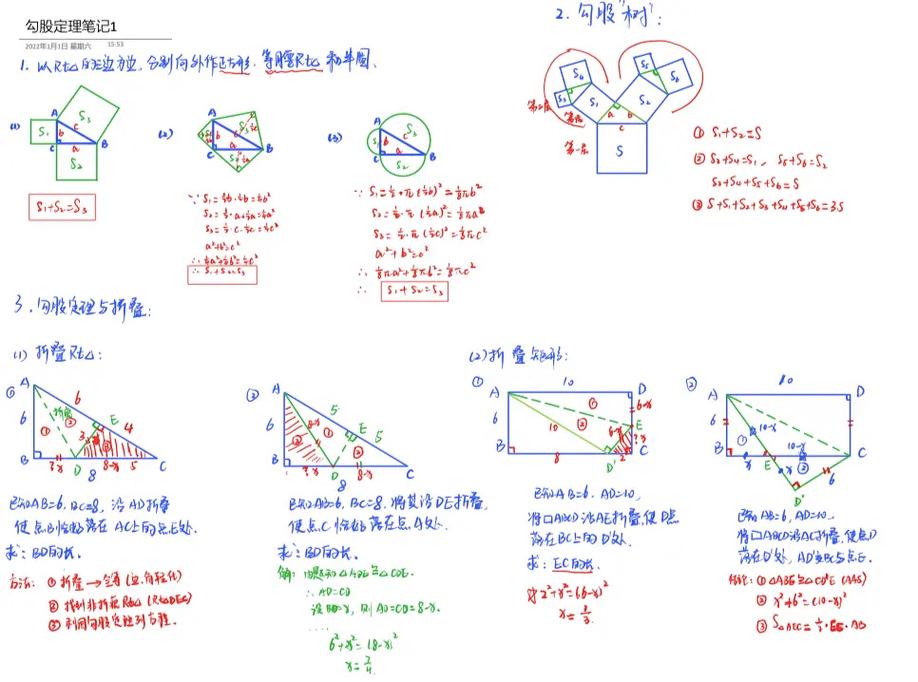 勾股定理笔记1
2022年1月1日 星期六 15:53
1. 以Rt△的三边为边,分别向外作正方形、等腰Rt△和半圆.
(1)
A
B
C
S₁
S₂
S₃
a
b
c
S₁+S₂=S₃
(2)
A
B
C
∵ S₁=½b·½b=¼b²
S₂=½·a·½a=¼a²
S₃=½·c·½c=¼c²
a²+b²=c²
∴ ¼a²+¼b²=¼c²
∴ S₁+S₂=S₃
(3)
A
B
C
S₂
S₃
a
b
c
∵ S₁=½·π(½b)²=⅛πb²
S₂=½·π(½a)²=⅛πa²
S₃=½·π(½c)²=⅛πc²
a²+b²=c²
∴ ⅛πa²+⅛πb²=⅛πc²
∴ S₁+S₂=S₃
2. 勾股"树":
S₄
S₃
S₁
S₅
S₆
S₂
a
b
c
S
第二层
第一层
① S₁+S₂=S
② S₃+S₄=S₁, S₅+S₆=S₂
S₃+S₄+S₅+S₆=S
③ S+S₁+S₂+S₃+S₄+S₅+S₆=3S
3. 勾股定理与折叠:
(1) 折叠Rt△:
①
A
6
6
折痕
E
4
B
D
8
8-x
5
C
已知AB=6, BC=8, 沿AD折叠
使点B恰好落在AC上的点E处.
求: BD的长.
方法: ① 折叠→全等(边,角转化)
② 找到非折叠Rt△ (Rt△DEC)
③ 利用勾股定理列方程.
②
A
6
5
E
5
8-x
B
D
8-x
8
C
已知AB=6, BC=8. 将其沿DE折叠,
使点C恰好落在点A处.
求: BD的长.
解: 由题知△ADE≌△CDE.
∴ AD=CD
设BD=x, 则AD=CD=8-x.
....
6²+x²=(8-x)²
x=7/4
(2) 折叠矩形:
①
10
A
D
6
10
6-x
E
B
8
D'
2
C
已知AB=6, AD=10,
将□ABCD沿AE折叠,使D点
落在BC上的D'处.
求: EC的长.
2²+x²=(6-x)²
②
10
A
D
6
10-x
10-x
B
x
E
x
C
6
D'
已知AB=6, AD=10.
将□ABCD沿AC折叠,使点D
落在D'处, AD'交BC与点E.
结论: ① △ABE≌△CD'E (AAS)
② x²+6²=(10-x)²
③ S△AEC=½·EC·AB